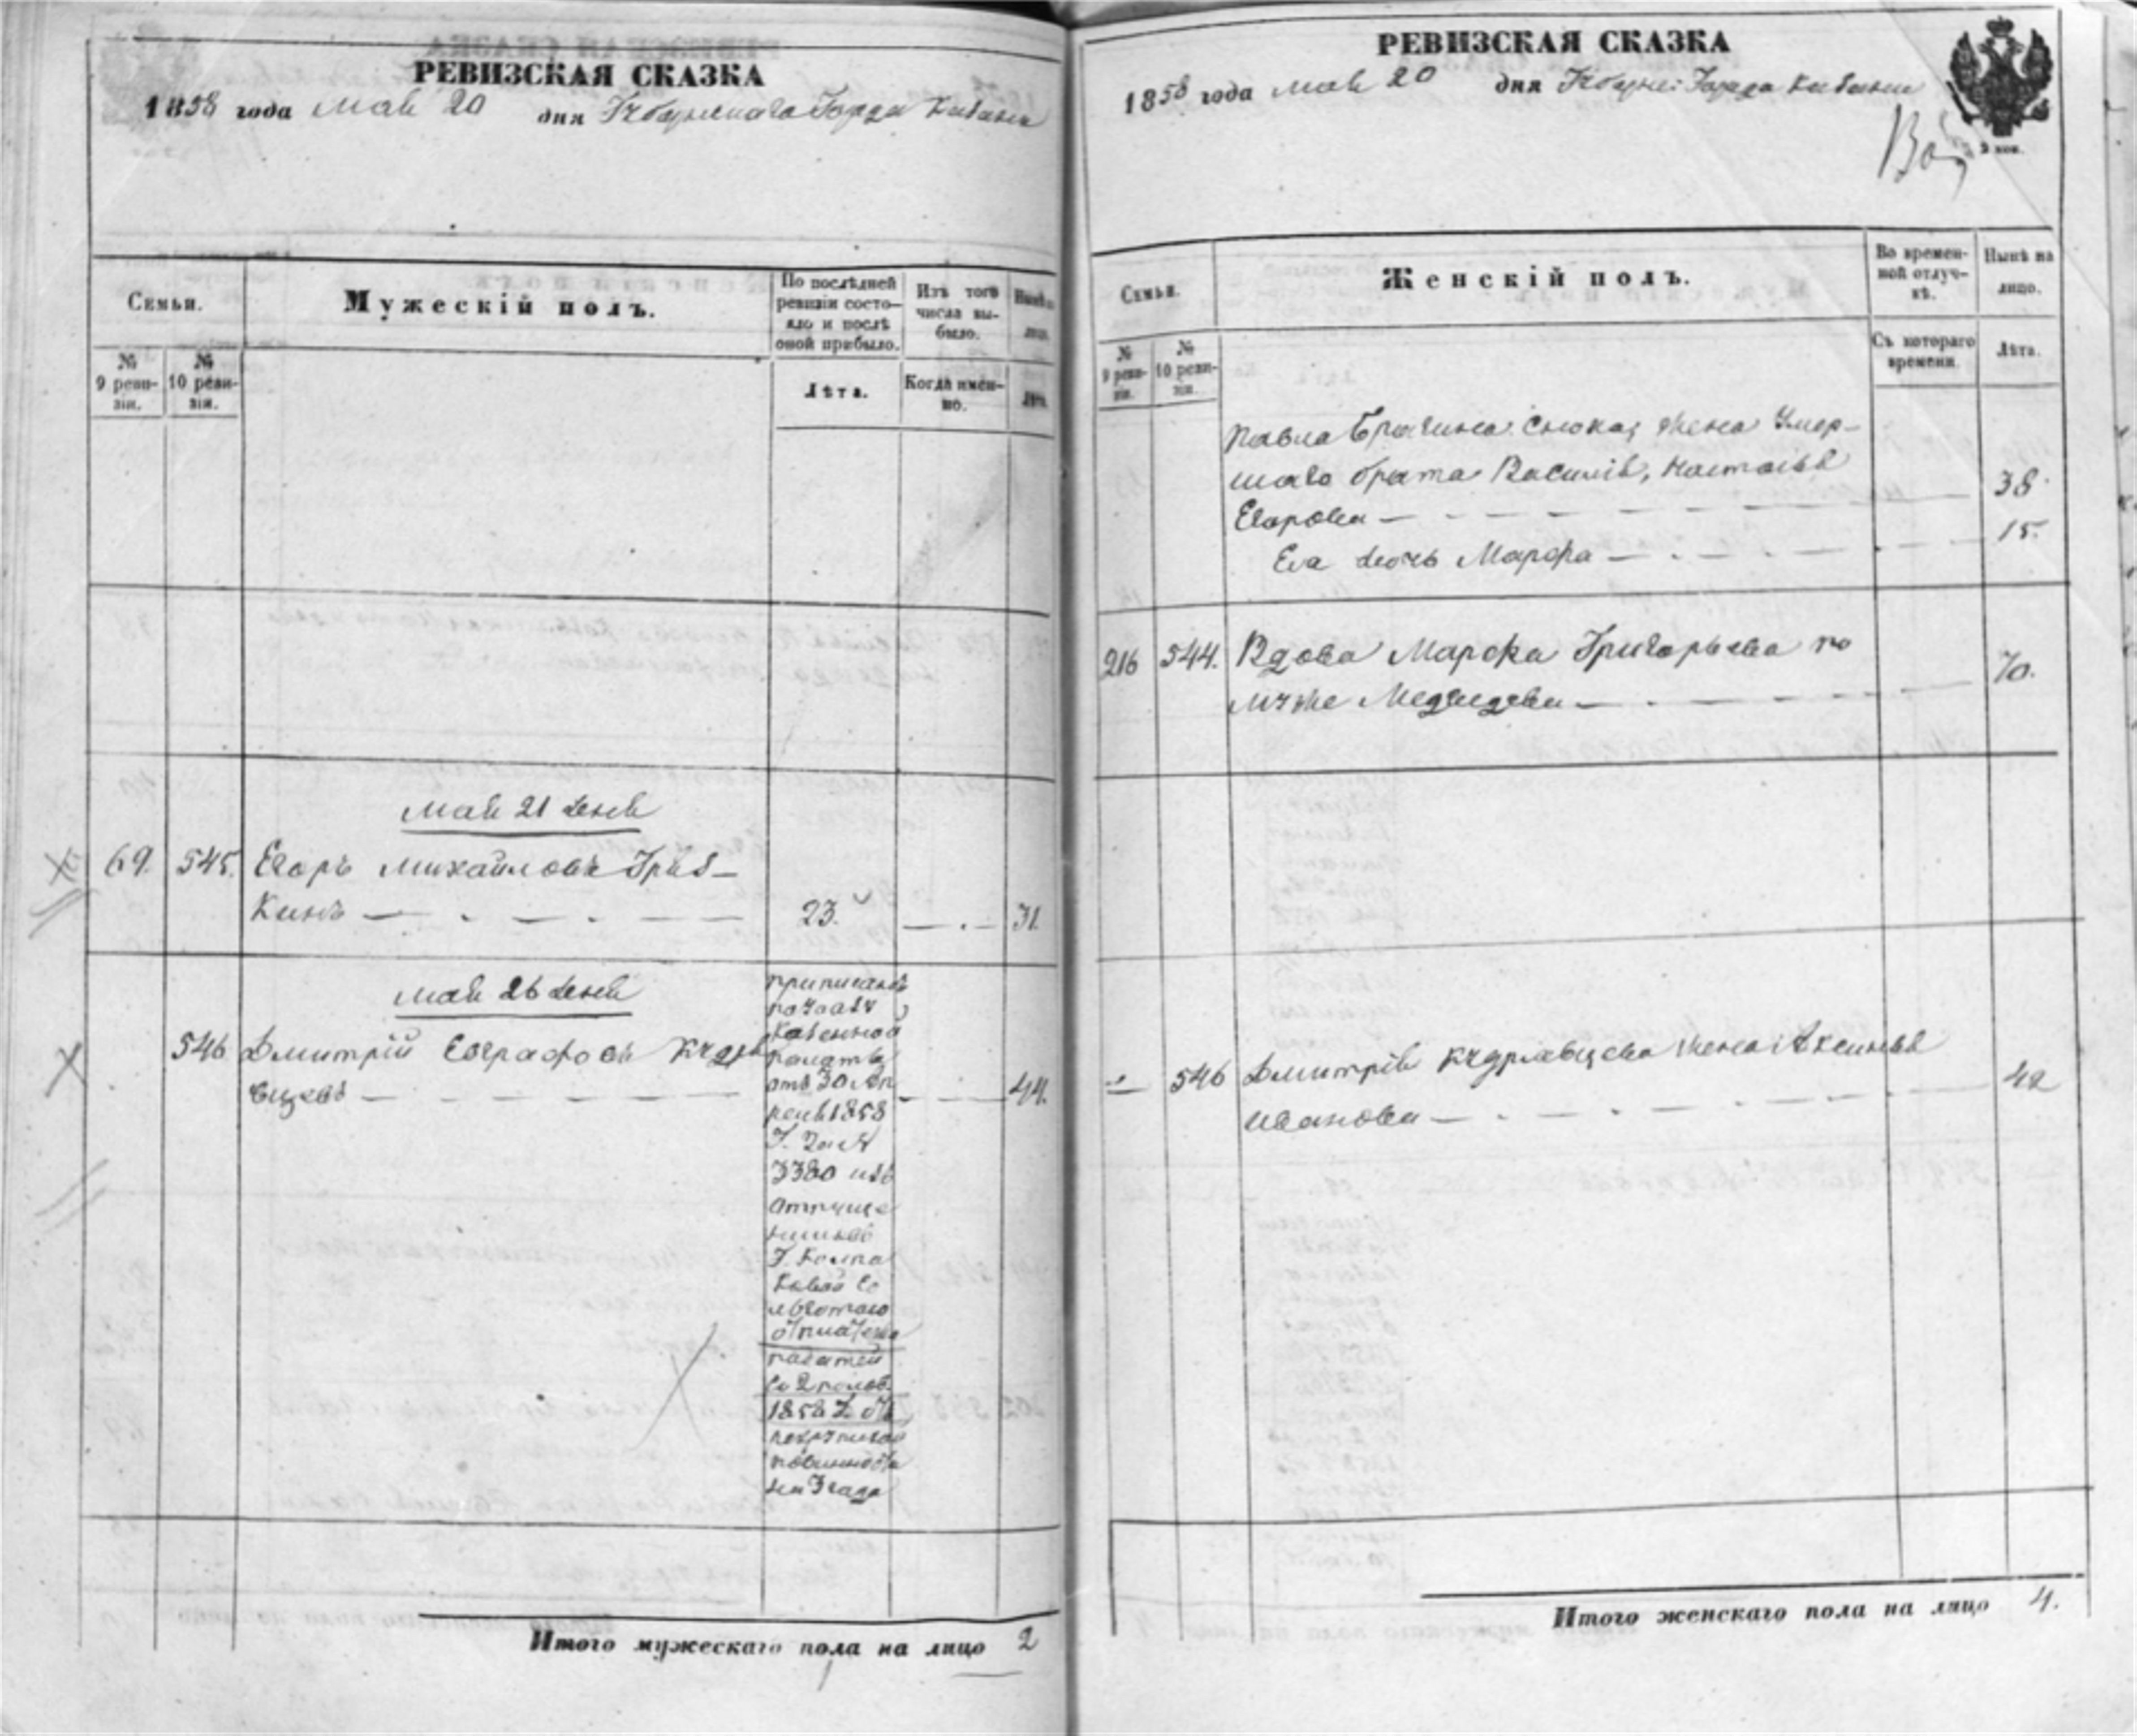 РЕВИЗСКАЯ СКАЗКА
1858 года Мая 20 дня Губернскаго Города Казани
Семьи.
Мужескій полъ.
По послѣдней ревизіи состо-
яло и послѣ
оной прибыло.
Изъ того
числа вы-
было.
Нынѣ на
лицо.
№
9 реви-
зіи.
№
10 реви-
зіи.
Лѣта.
Когда имен-
но.
Лѣта.
Мая 21 дня
69. 545. Егоръ Михайловъ Гряз-
кинъ 23. 31.
Мая 26 дня
546 Дмитрій Евграфовъ Кудря
вцевъ 44.
приписанъ
по указу
Казенной
палаты
отъ 30 Ап
реля 1858
Г. за №
3380 изъ
отпуще
нниковъ
Г.
со
льготою
отплатежа
податей
со 2 полов.
1858 г. отъ
рекрутской
повинности
на 3 года
Итого мужескаго пола на лицо 2
РЕВИЗСКАЯ СКАЗКА
1858 года Мая 20 дня Губерн: Города Казани
2 коп.
Семьи.
Женскій полъ.
Во времен-
ной отлуч-
кѣ.
Нынѣ на
лицо.
№
9 реви-
зіи.
№
10 реви-
зіи.
Съ котораго
времени.
Лѣта.
Павла жена Умер-
шаго брата Василія, Настасья 38.
Егорова
Ея дочь Марфа 15.
216 544. Вдова Марфа Григорьева по
мужѣ Медведева 70.
546 Дмитрія Кудрявцева жена Аксинья
Иванова 42
Итого женскаго пола на лицо 4.